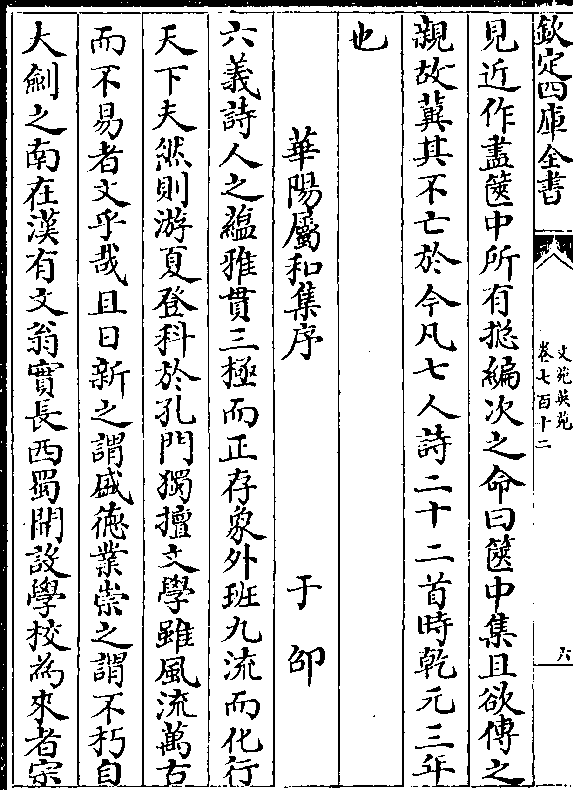 欽定四庫全書
文苑英苑
卷七百十二
六
見近作盡篋中所有摠編次之命曰篋中集且欲傳之
親故冀其不亡於今凡七人詩二十二首時乾元三年
也
華陽屬和集序 于邵
六義詩人之蘊雅貫三極而正存象外班九流而化行
天下夫然則游夏登科於孔門獨擅文學雖風流萬古
而不易者文乎哉且日新之謂盛徳業崇之謂不朽自
大劒之南在漢有文翁實長西蜀開設學校為來者宗